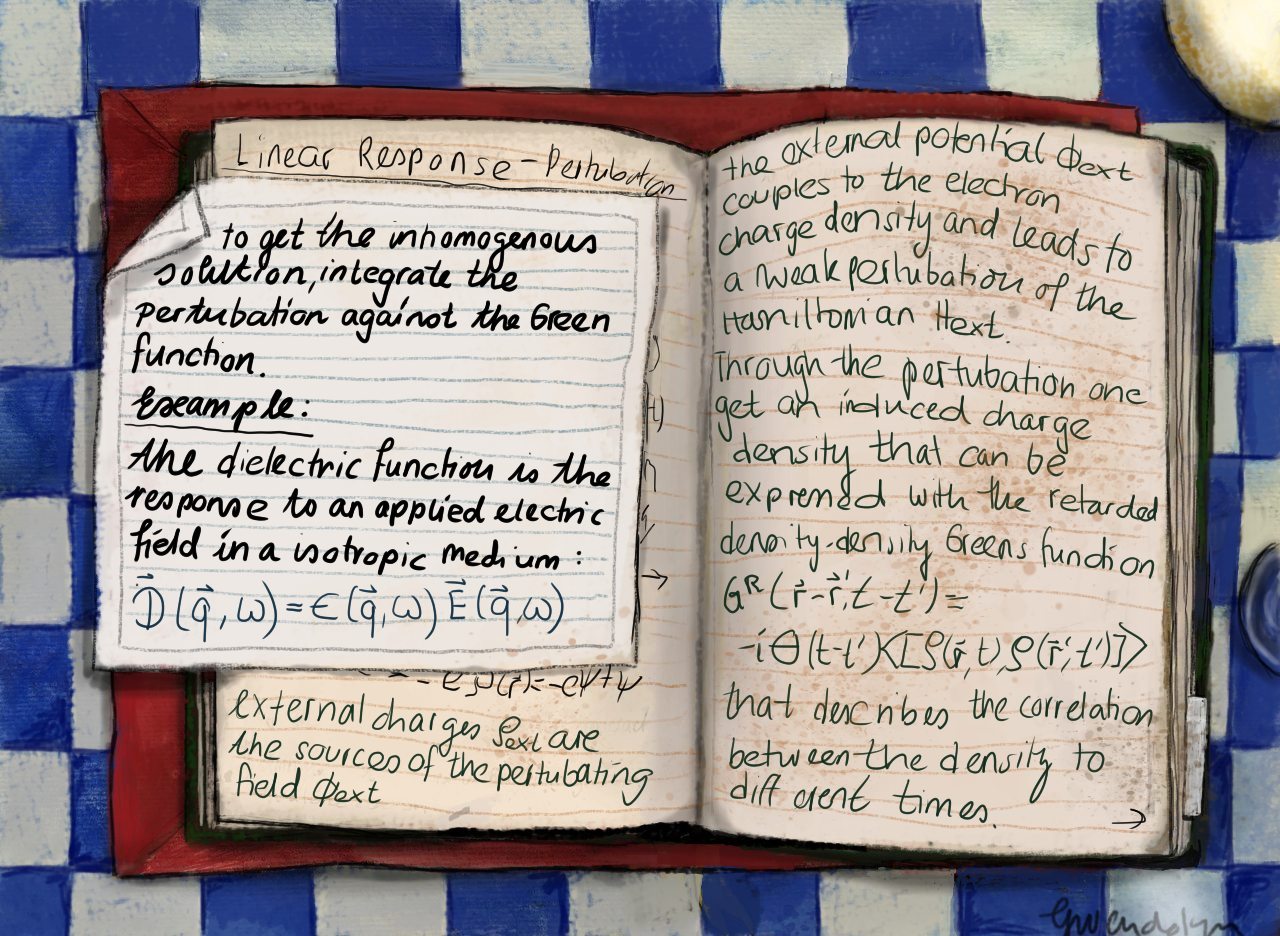 Linear Response - Pertubation
to get the inhomogenous
solution, integrate the
perturbation against the Green
function.
Example:
the dielectric function is the
response to an applied electric
field in a isotropic medium:
D⃗(q⃗,ω)=ϵ(q⃗,ω)E⃗(q⃗,ω)
)
t)
n
→
- eρ(r⃗)=-eψ†ψ
external charges ρext are
the sources of the pertubating
field ϕext
the external potential ϕext
couples to the electron
charge density and leads to
a weak pertubation of the
Hamiltonian Hext.
Through the pertubation one
get an induced charge
density that can be
expressed with the retarded
density-density Greens function
Gᴿ(r⃗-r⃗',t-t')=
-iΘ(t-t')<[ρ(r⃗,t),ρ(r⃗',t')]>
that describes the correlation
between the density to
different times.
→
Gwendolyn